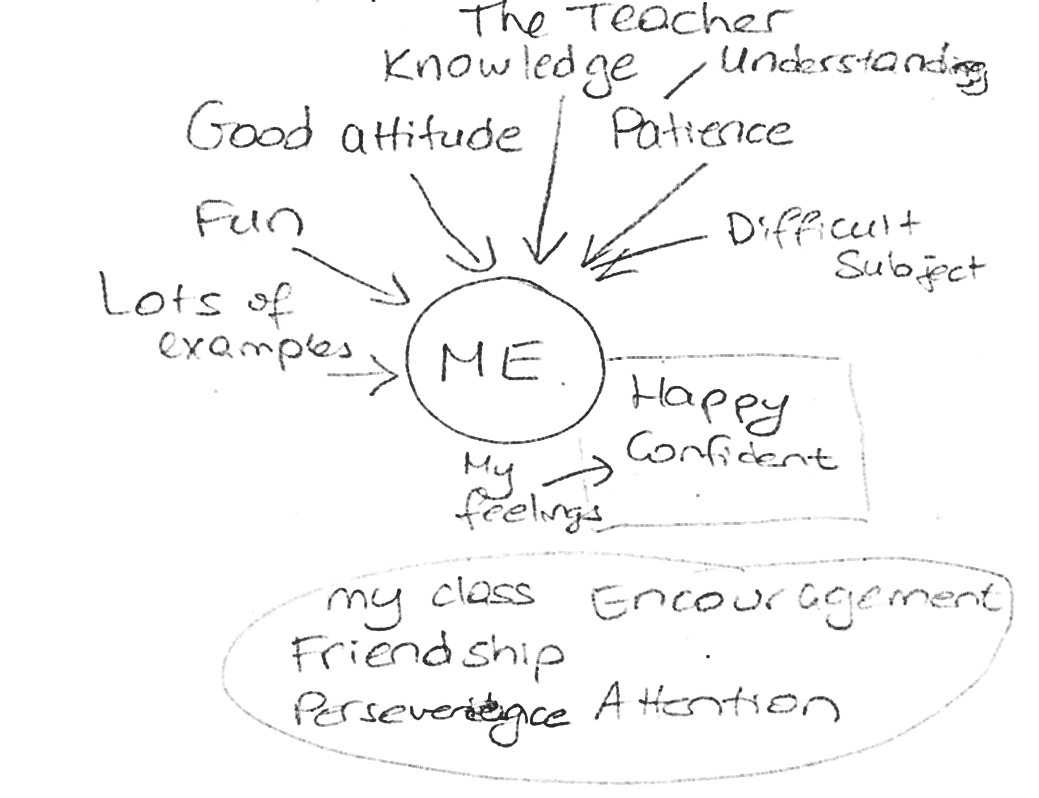 The Teacher
Knowledge Understanding
Good attitude Patience
Fun Difficult
Subject
Lots of
examples
ME
Happy
Confident
My
feelings
my class Encouragement
Friendship
Attention